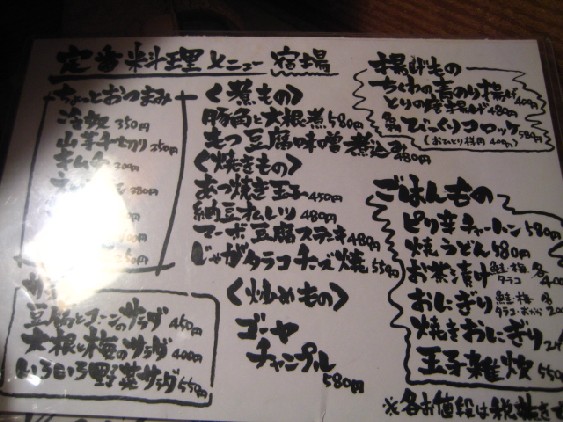 定番料理メニュー 宿場
ちょっとおつまみ
活奴 350円
山芋千切り 350円
キムチ 300円
豆腐とコーンのサラダ 450円
大根と梅のサラダ 400円
いろいろ野菜サラダ 550円
〈煮もの〉
豚肉と大根煮 580円
もつ豆腐味噌煮込み 480円
〈焼きもの〉
あつ焼き玉子 450円
納豆オムレツ 480円
マーボ豆腐ステーキ 480円
じゃがタラコチーズ焼 550円
〈炒めもの〉
ゴーヤ
チャンプル 580円
揚げもの
ちくわの青のり揚げ 400円
とりの唐揚げ 480円
びっくりコロッケ 780円
(おひとり様用 400円)
ごはんもの
ピリ辛チャーハン 580円
焼うどん 580円
お茶漬け 鮭・梅 各
タラコ
おにぎり 鮭・梅 各
タラコ・おかか
焼きおにぎり
玉子雑炊
※各お値段は税抜き